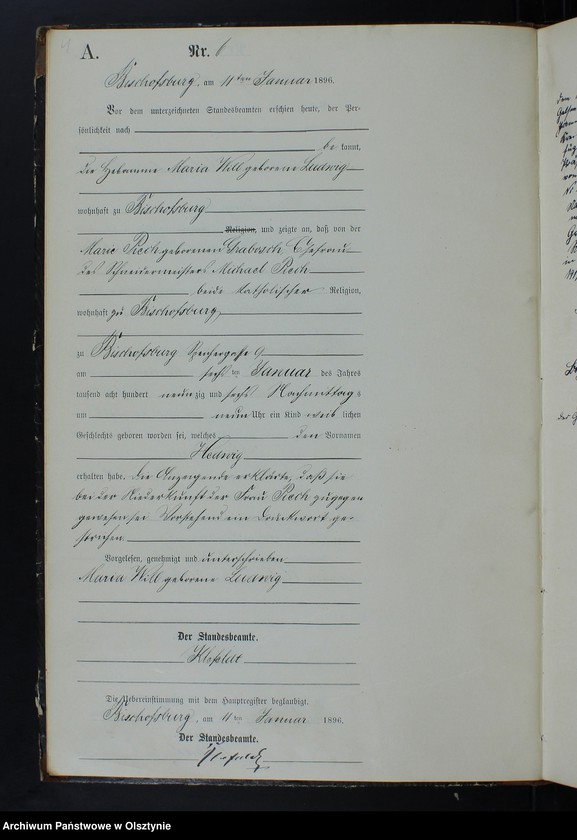 A. Nr. 6
Bischofsburg, am 11ten Januar 1896.
Vor dem unterzeichneten Standesbeamten erschien heute, der Per-
sönlichkeit nach
bekannt,
die Hebamme Maria Will geborene Ludwig
wohnhaft zu Bischofsburg
Religion, und zeigte an, daß von der
Marie Rech geborenen Grabosch Ehefrau
des Schneidermeisters Michael Rech
beide katholischer Religion,
wohnhaft zu Bischofsburg,
zu Bischofsburg
am sechsten Januar des Jahres
tausend acht hundert neunzig und sechs Nachmittags
um neun Uhr ein Kind weiblichen
Geschlechts geboren worden sei, welches den Vornamen
Hedwig
erhalten habe. Die Anzeigende erklärte, daß sie
bei der Niederkunft der Frau Rech zugegen
gewesen sei. Vorstehend ein Druckwort ge-
strichen.
Vorgelesen, genehmigt und unterschrieben
Maria Will geborene Ludwig
Der Standesbeamte.
Die Uebereinstimmung mit dem Hauptregister beglaubigt.
Bischofsburg, am 11ten Januar 1896.
Der Standesbeamte.
Archiwum Państwowe w Olsztynie